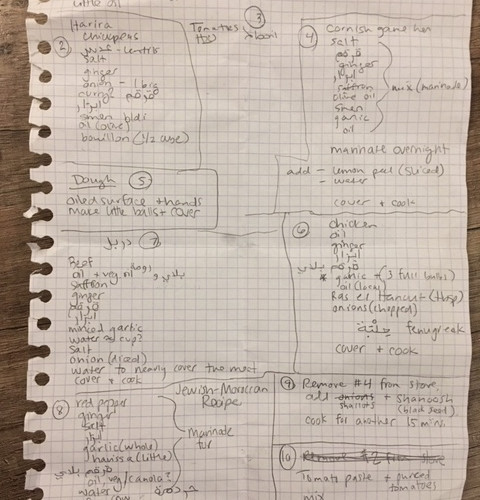 little oil
Harira
chickpeas
② عدس - lentils
salt
ginger
onion - 1 big
curry? قرقم
ابزار
smen bldi
oil (olive)
bouillon (1/2 cube)
③
Tomatoes
④ Cornish game hen
salt
قرقم
ginger
ابزار
saffron
olive oil
smen
garlic
oil
mix (marinade)
marinate overnight
add - lemon peel (sliced)
- water
cover + cook
Dough ⑤
oiled surface + hands
make little balls + cover
⑥ chicken
oil
ginger
ابزار
قرقم بلدي
* garlic (3 full bulbs)
oil (local)
Ras el Hanout (tbsp)
onions (chopped)
حلبة fenugreek
cover + cook
⑦
Beef
oil + veg. oil
saffron
ginger
قرقم
ابزار
minced garlic
water cup?
salt
onion (diced)
water to nearly cover the meat
cover + cook
Jewish-Moroccan
Recipe
⑧ red pepper
ginger
salt
ابزار
garlic (whole)
harissa (little)
قرقم بلدي
oil, veg/canola?
water
marinate
⑨ Remove #4 from stove,
add onions + shanoosh
shallots (black seed)
cook for another 15 min.
⑩ Remove #2 from stove
Tomato paste + pureed
tomatoes
mix